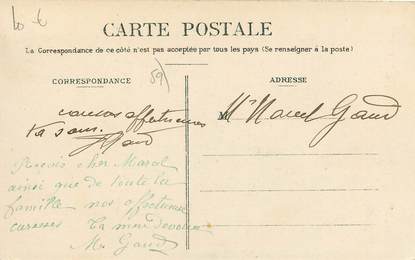 10 €
CARTE POSTALE
La Correspondance de ce côté n'est pas acceptée par tous les pays (Se renseigner à la poste)
CORRESPONDANCE
59)
ADRESSE
Mr Marcel Gaud
M
affectueuses
Ta
Reçois cher Marcel
ainsi que de toute la
famille nos affectueuses
caresses Ta
M. Gaud